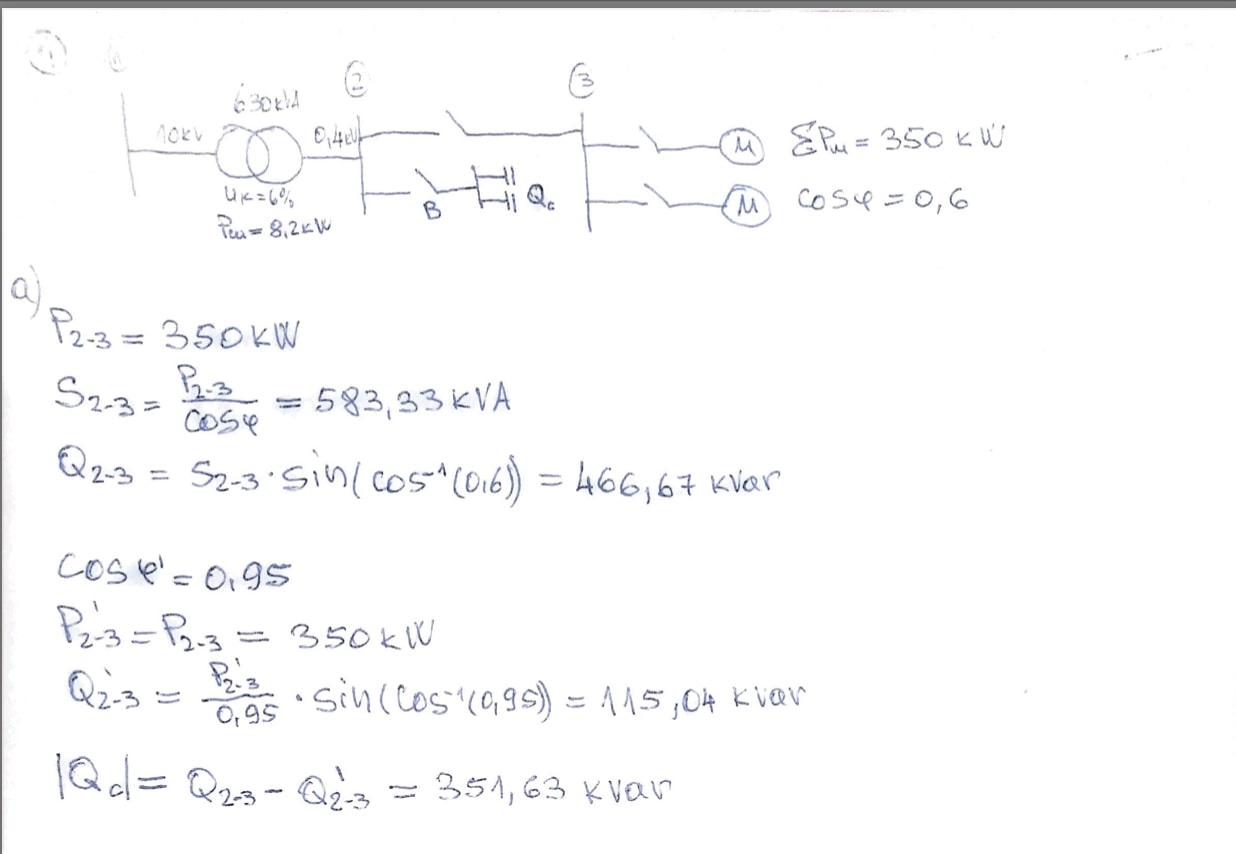 ② ③
630 kVA
10kV 0,4kV
M ΣPm = 350 kW
B Qc
uk=6% M cosφ = 0,6
Pcu= 8,2kW
a)
P2-3 = 350 kW
S2-3 = P2-3 / cosφ = 583,33 kVA
Q2-3 = S2-3 · sin(cos⁻¹(0,6)) = 466,67 kvar
cosφ' = 0,95
P'2-3 = P2-3 = 350 kW
Q'2-3 = P'2-3 / 0,95 · sin(cos⁻¹(0,95)) = 115,04 kvar
|Qc| = Q2-3 - Q'2-3 = 351,63 kvar